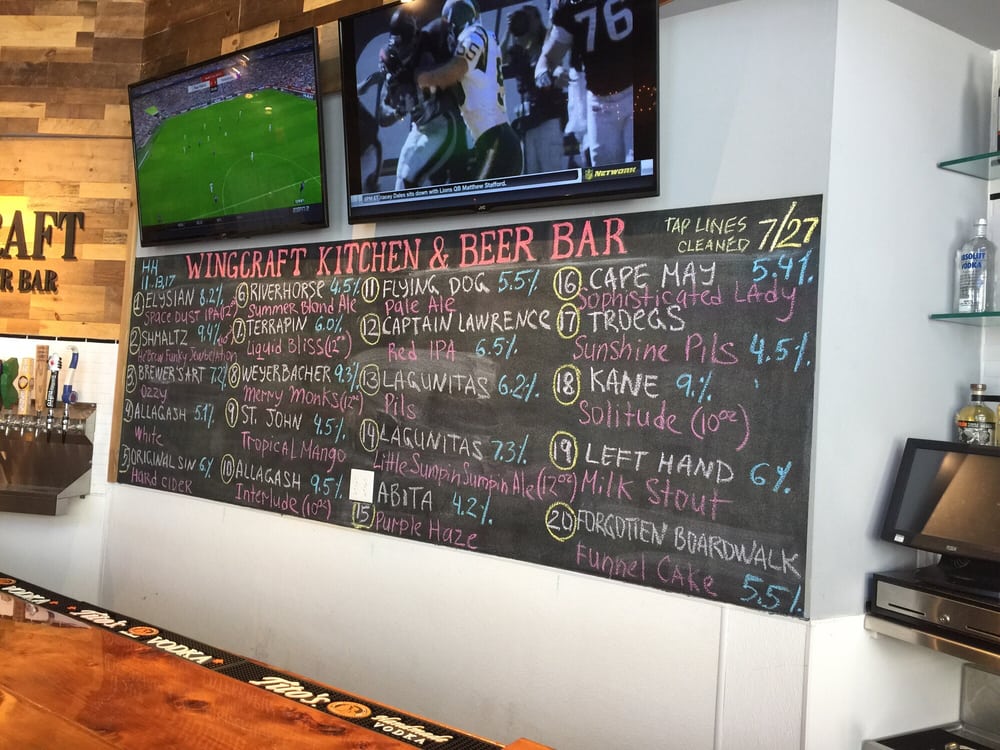 CRAFT
ER BAR
76
55
6PM ET
Tracey Dales sits down with Lions QB Matthew Stafford.
NFL NETWORK
JVC
WINGCRAFT KITCHEN & BEER BAR
TAP LINES
CLEANED 7/27
HH
11,13,17
1 ELYSIAN 8.2%
SPACE DUST IPA (12oz)
2 SHMALTZ 9.4%
He'Brew Funky Jewbelation
3 BREWER'S ART 7.2%
Ozzy
4 ALLAGASH 5.1%
White
5 ORIGINAL SIN 6%
Hard CIDER
6 RIVERHORSE 4.5%
Summer Blond Ale
7 TERRAPIN 6.0%
Liquid Bliss (12oz)
8 WEYERBACHER 9.3%
Merry Monks (12oz)
9 ST. JOHN 4.5%
Tropical Mango
10 ALLAGASH 9.5%
Interlude (10oz)
11 FLYING DOG 5.5%
Pale Ale
12 CAPTAIN LAWRENCE
Red IPA 6.5%
13 LAGUNITAS 6.2%
Pils
14 LAGUNITAS 7.3%
Little Sumpin Sumpin Ale (12oz)
15 ABITA 4.2%
Purple Haze
16 CAPE MAY 5.4%
Sophisticated LAdy
17 TROEGS
Sunshine Pils 4.5%
18 KANE 9%
Solitude (10oz)
19 LEFT HAND 6%
Milk Stout
20 FORGOTTEN BOARDWALK
Funnel Cake 5.5%
ABSOLUT
VODKA
VODKA
Tito's VODKA
Tito's Handmade VODKA